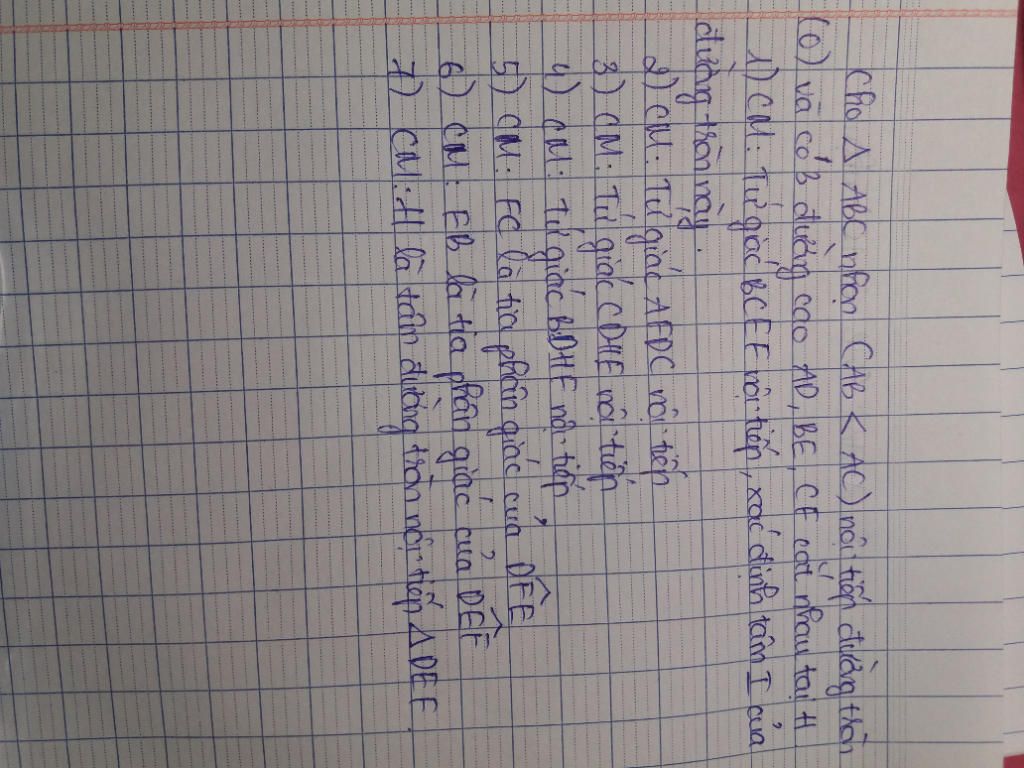 Cho Δ ABC nhọn (AB < AC) nội tiếp đường tròn
(O) và có 3 đường cao AD, BE, CF cắt nhau tại H
1) CM: Tứ giác BCEF nội tiếp, xác định tâm I của
đường tròn này.
2) CM: Tứ giác AFDC nội tiếp
3) CM: Tứ giác CDHE nội tiếp
4) CM: Tứ giác BDHF nội tiếp
5) CM: FC là tia phân giác của DFE
6) CM: EB là tia phân giác của DEF
7) CM: H là tâm đường tròn nội tiếp Δ DEF.